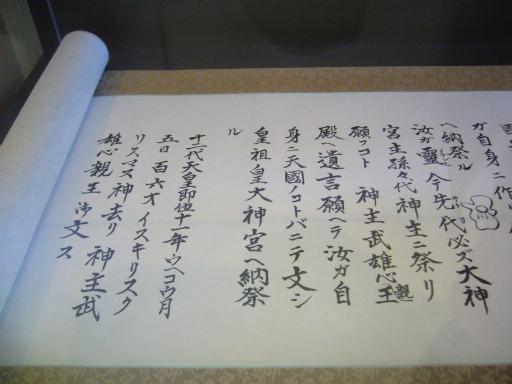 ガ自身ニ作
ヘ納祭ル
汝ガ靈今先代必ズ大神
宮主孫々代神主ニ祭リ
願フコト 神主武雄心親王
殿ヘ遺言願ヘテ汝ガ自
身ニ天國ノコトバニテ文シ
皇祖皇大神宮ヘ納祭
ル
十一代天皇即位十一年ウヘコウ月
五日百六才イスキリスク
リスマス神去リ 神主武
雄心親王御文ス